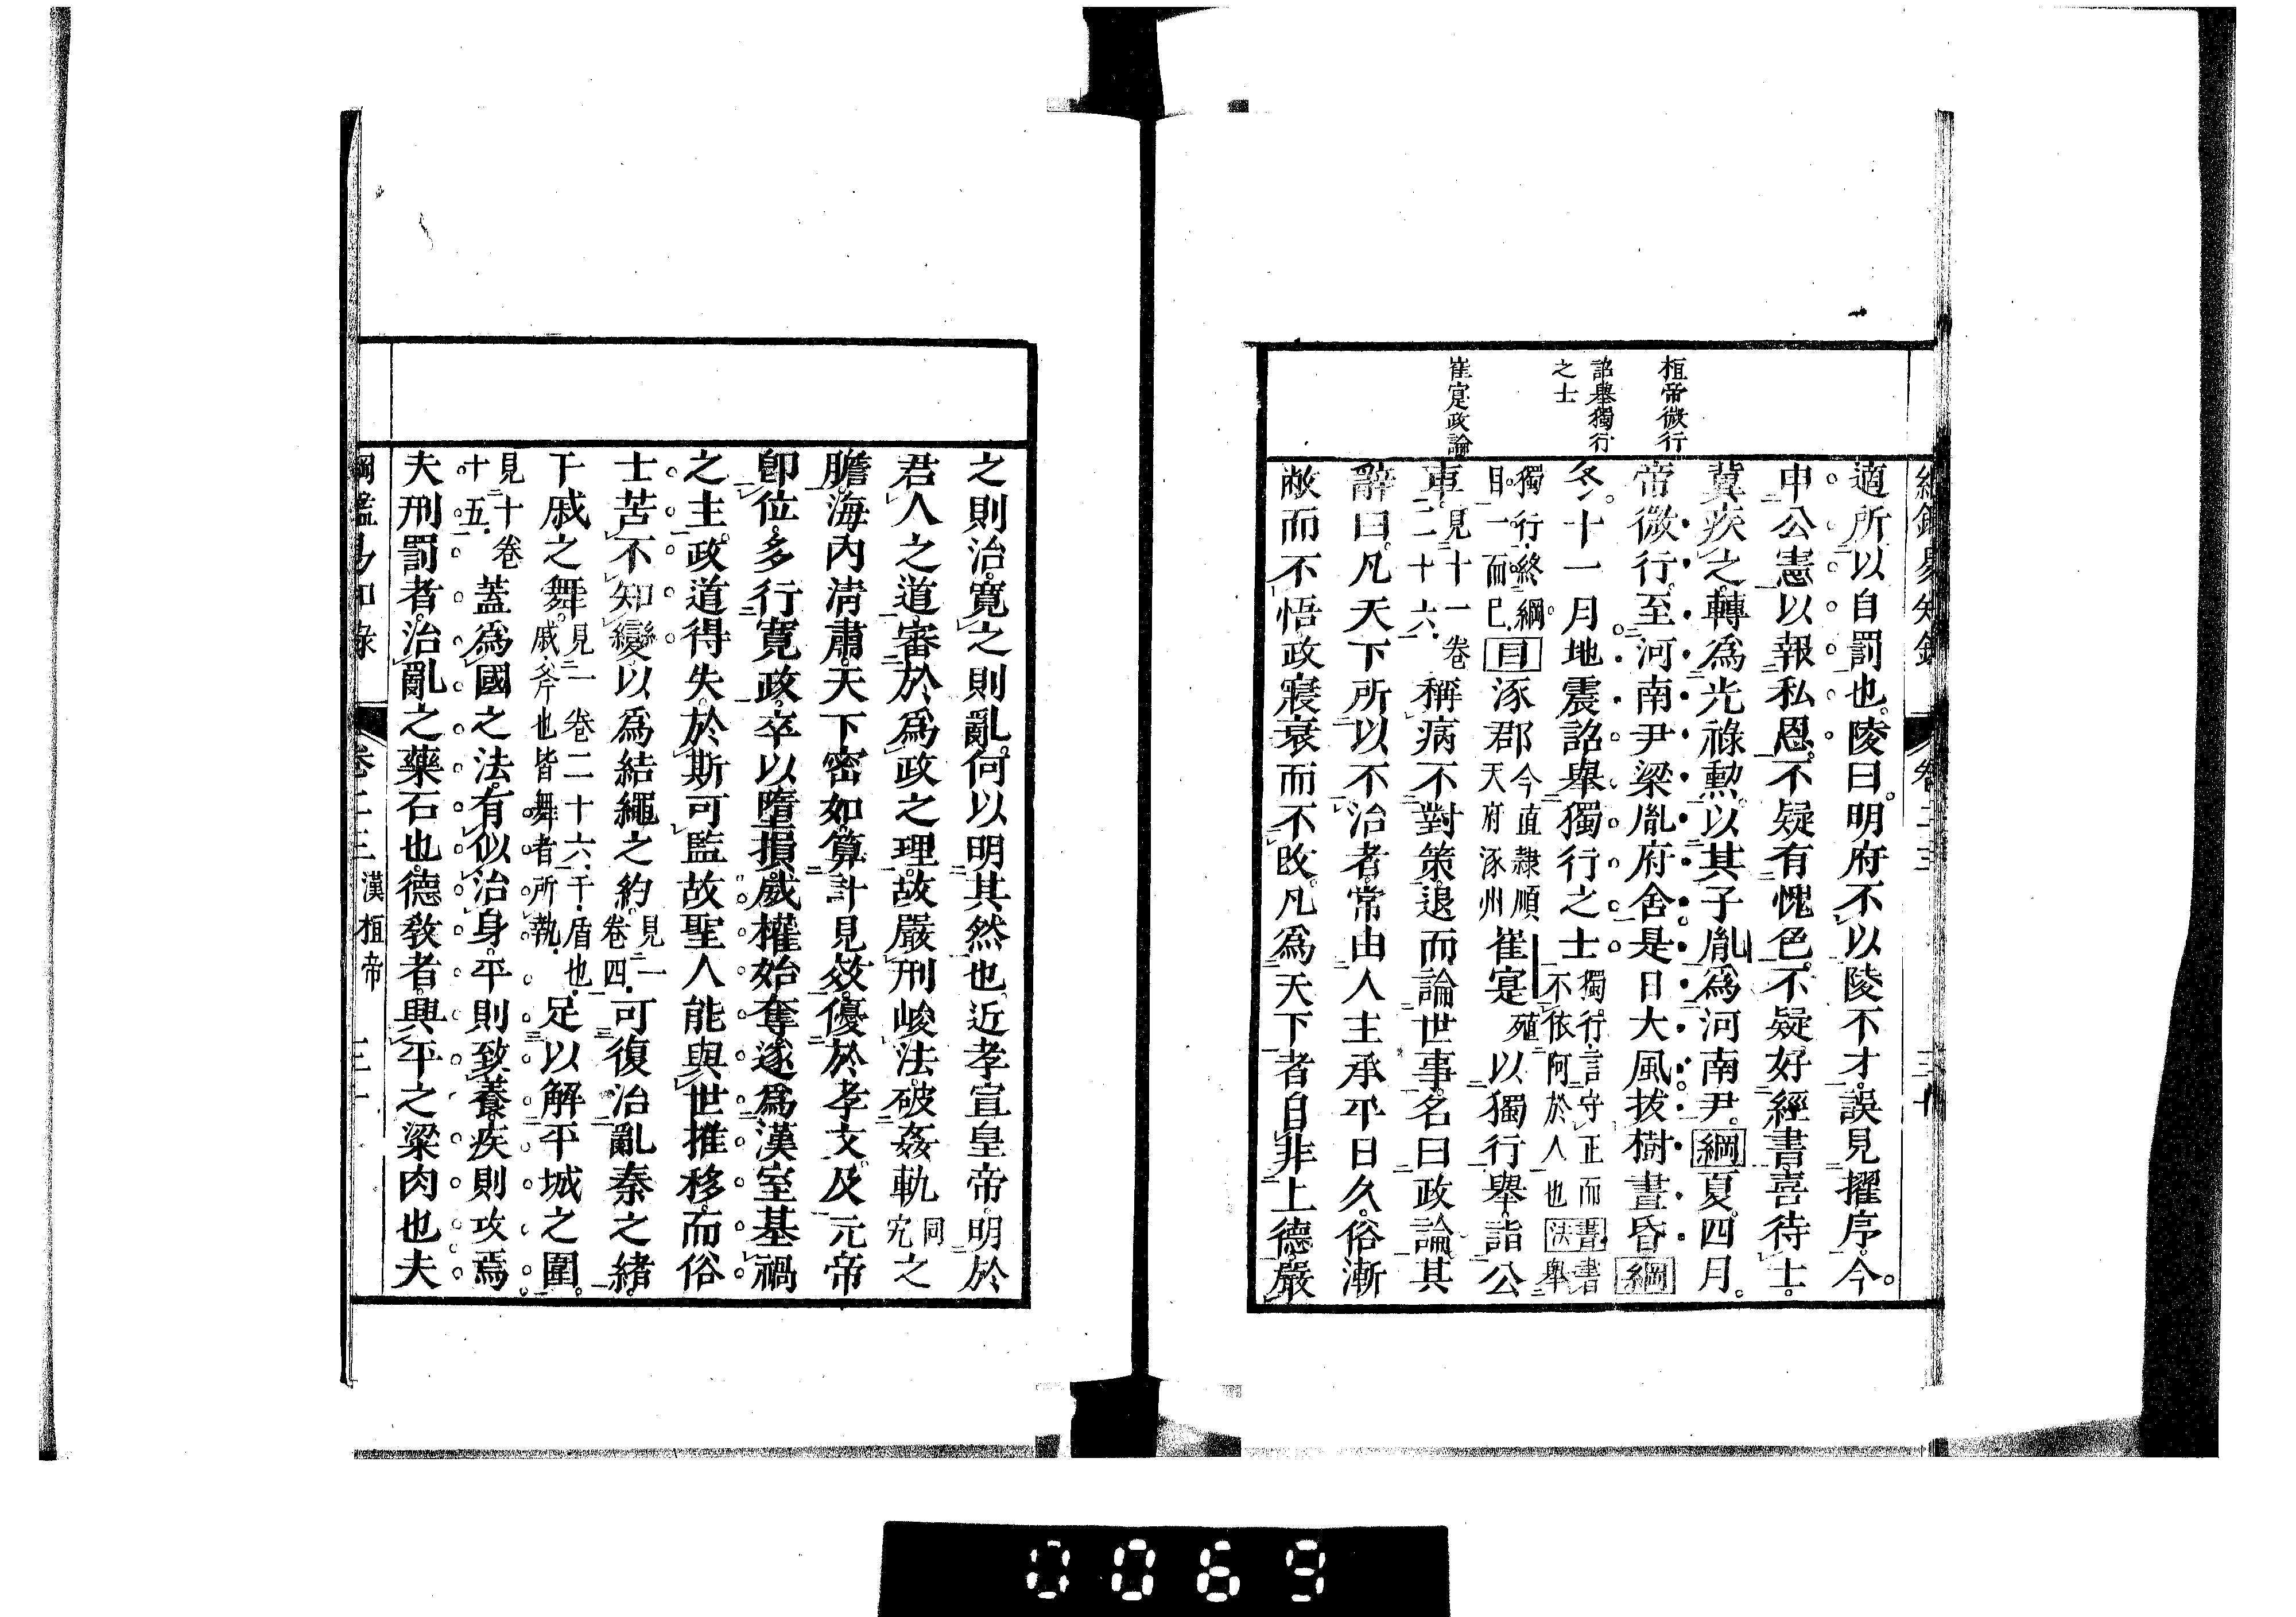 桓帝微行
詔舉獨行
之士
崔寔政論
適所以自罰也陵曰明府不以陵不才誤見擢序今
申公憲以報私恩不疑有愧色不疑好經書喜待士
冀疾之轉爲光祿勲以其子胤爲河南尹綱夏四月
帝微行至河南尹梁胤府舍是日大風拔樹晝昏綱
冬十一月地震詔舉獨行之士獨行言守正而不依阿於人也書法書舉
獨行終綱目一而巳目涿郡今直隷順天府涿州崔寔殖以獨行舉詣公
車見十一卷二十六稱病不對策退而論世事名曰政論其
辭曰凡天下所以不治者常由人主承平日久俗漸
敝而不悟政寢衰而不改凡爲天下者自非上德嚴
之則治寛之則亂何以明其然也近孝宣皇帝明於
君人之道審於爲政之理故嚴刑峻法破姦軌同宄之
膽海內淸肅天下密如算計見效優於孝文及元帝
卽位多行寛政卒以墮損威權始奪遂爲漢室基禍
之主政道得失於斯可監故聖人能與世推移而俗
士苦不知變以爲結繩之約見一卷四可復治亂秦之緖
干戚之舞見二卷二十六干盾也戚斧也皆舞者所執足以解平城之圍
見十卷十五蓋爲國之法有似治身平則致養疾則攻焉
夫刑罰者治亂之藥石也德敎者興平之梁肉也夫
綱鑑易知錄 卷二三 漢桓帝